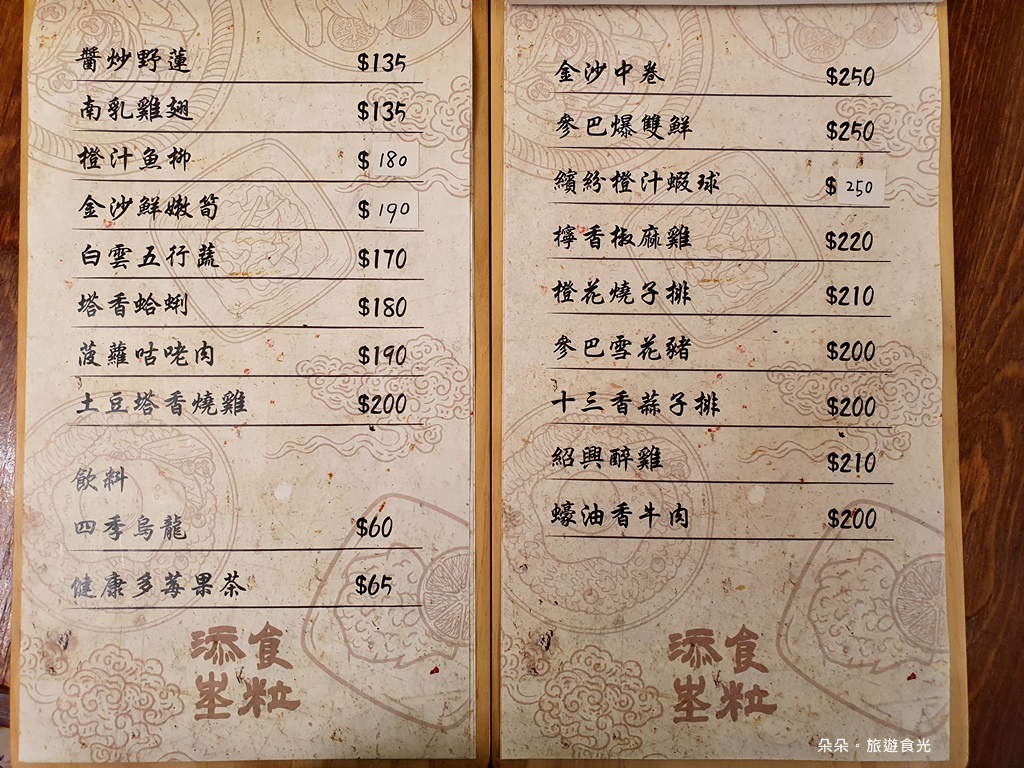 醬炒野蓮 $135
南乳雞翅 $135
橙汁魚柳 $180
金沙鮮嫩筍 $190
白雲五行蔬 $170
塔香蛤蜊 $180
菠蘿咕咾肉 $190
土豆塔香燒雞 $200
飲料
四季烏龍 $60
健康多莓果茶 $65
添食
粒
金沙中卷 $250
參巴爆雙鮮 $250
繽紛橙汁蝦球 $250
檸香椒麻雞 $220
橙花燒子排 $210
參巴雪花豬 $200
十三香蒜子排 $200
紹興醉雞 $210
蠔油香牛肉 $200
添食
粒
朵朵。旅遊食光